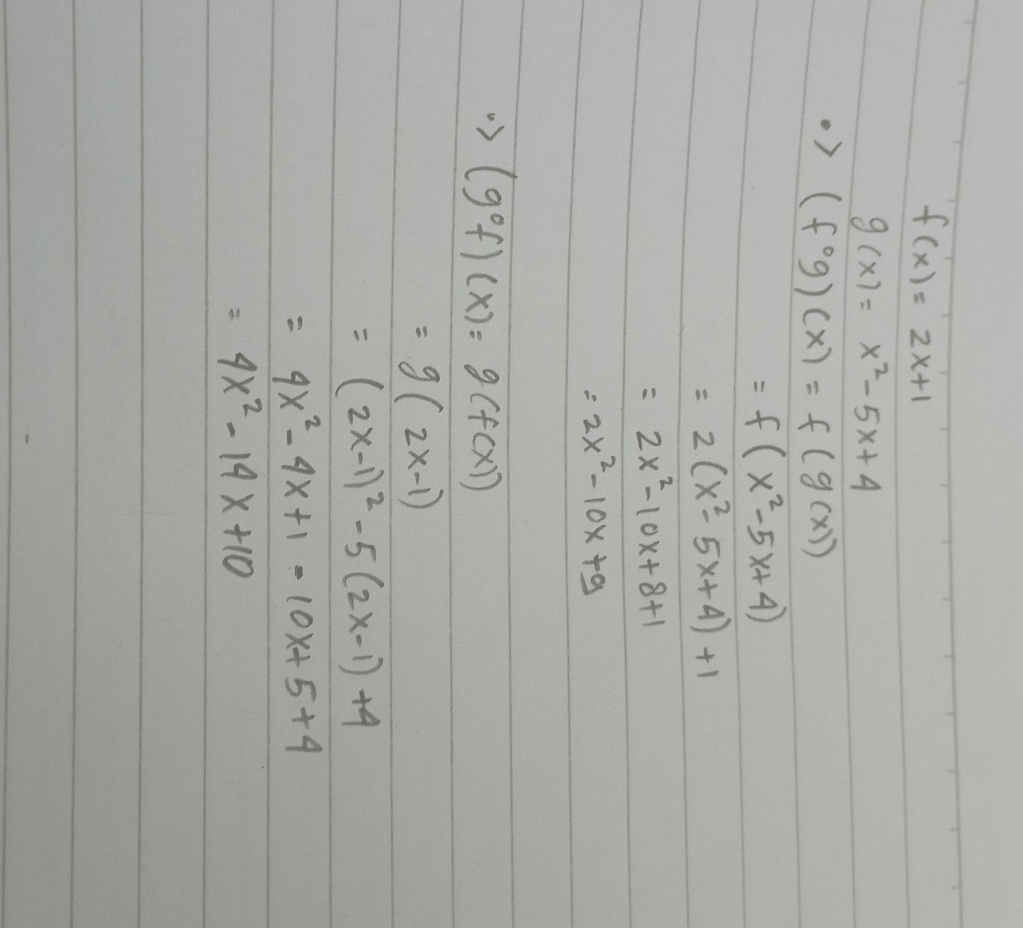 f(x) = 2x+1
g(x) = x²-5x+4
•> (f∘g)(x) = f(g(x))
= f(x²-5x+4)
= 2(x²-5x+4)+1
= 2x²-10x+8+1
= 2x²-10x+9
•> (g∘f)(x) = g(f(x))
= g(2x-1)
= (2x-1)²-5(2x-1)+4
= 4x²-4x+1-10x+5+4
= 4x²-14x+10